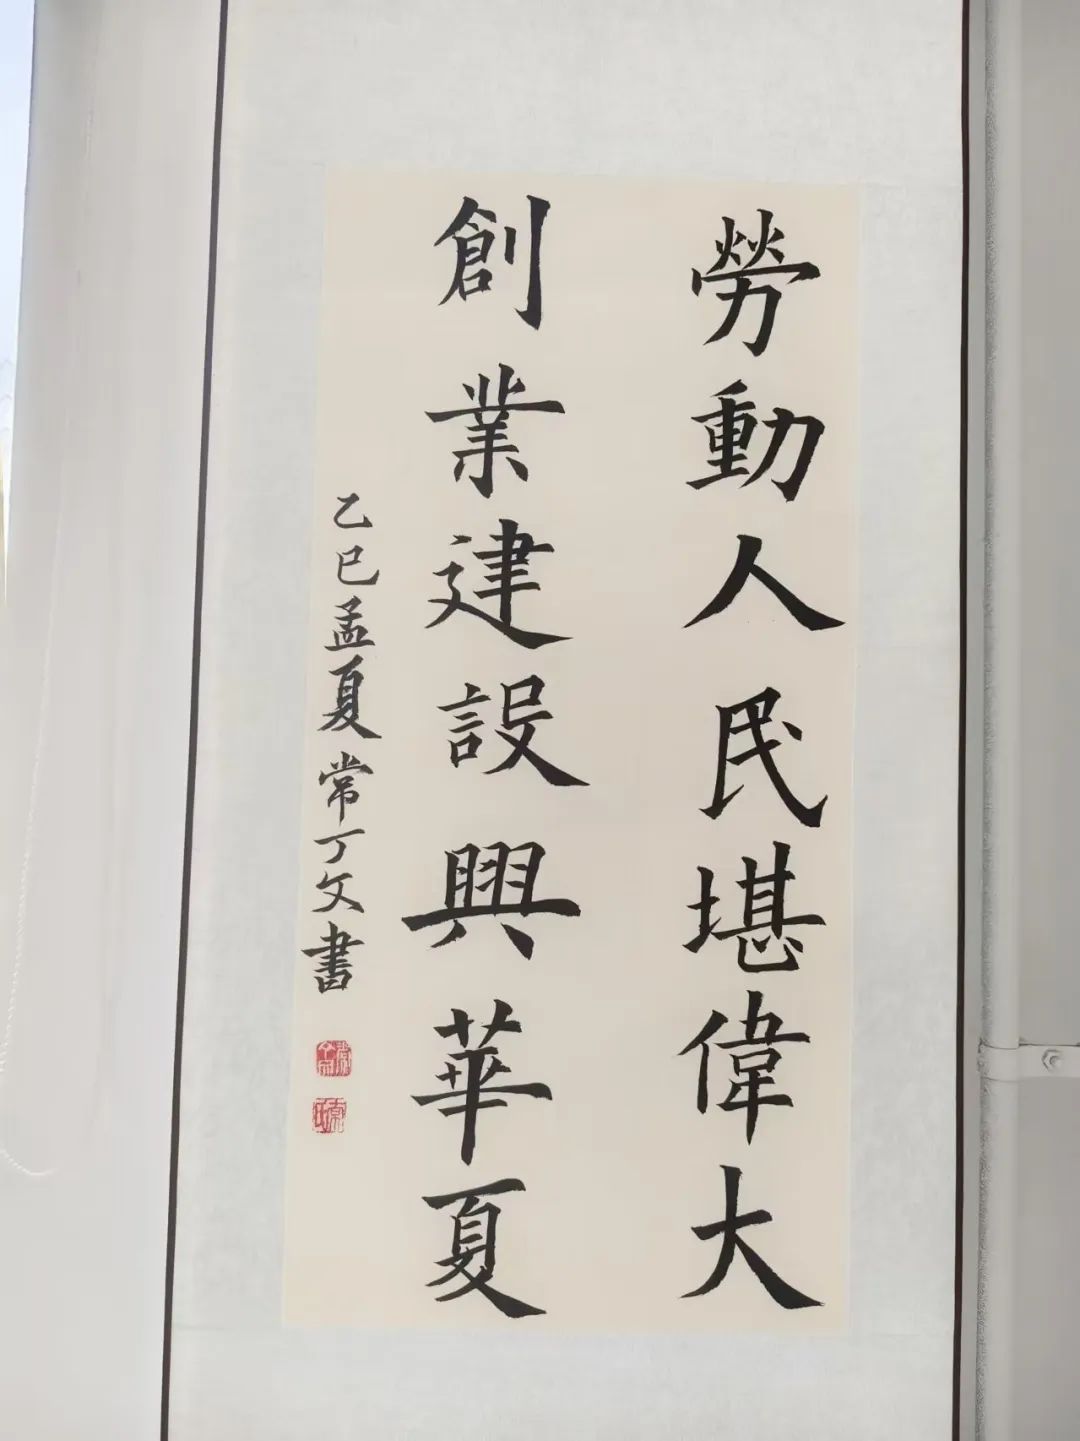 勞動人民堪偉大
創業建設興華夏
乙巳孟夏常丁文書